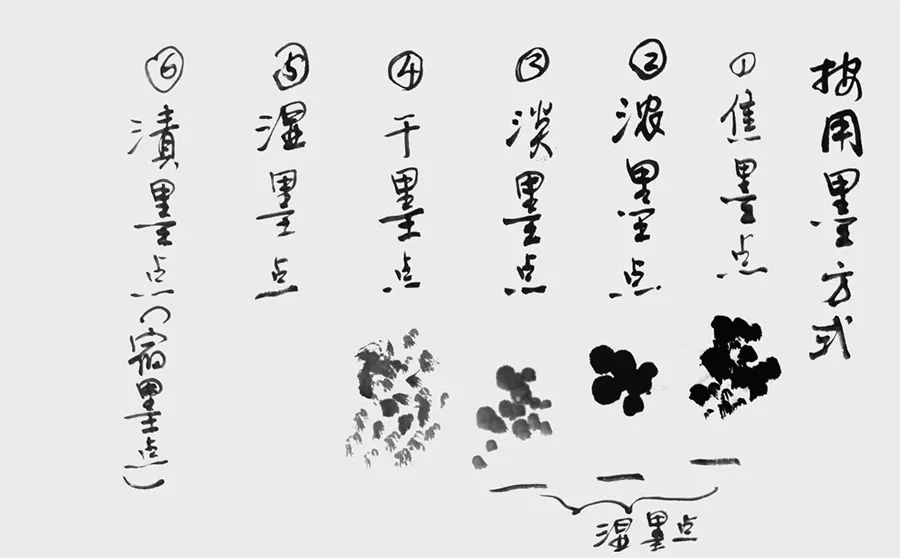 按用墨方式
①焦墨点
②浓墨点
③淡墨点
④干墨点
⑤湿墨点
⑥渍墨点(宿墨点)
湿墨点